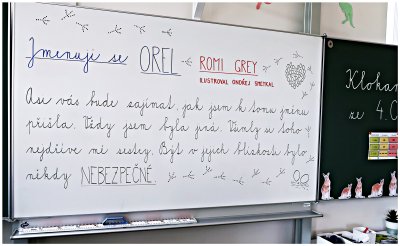 Jmenuji se OREL - ROMI GREY
ILUSTROVAL ONDŘEJ SMETKAL
Asi vás bude zajímat, jak jsem k tomu jménu
přišla. Vždy jsem byla jiná. Vinily se toho
nejdříve mé sestry. Být v jejich blízkosti bylo
někdy NEBEZPEČNÉ.
Klokan
ze 4.C